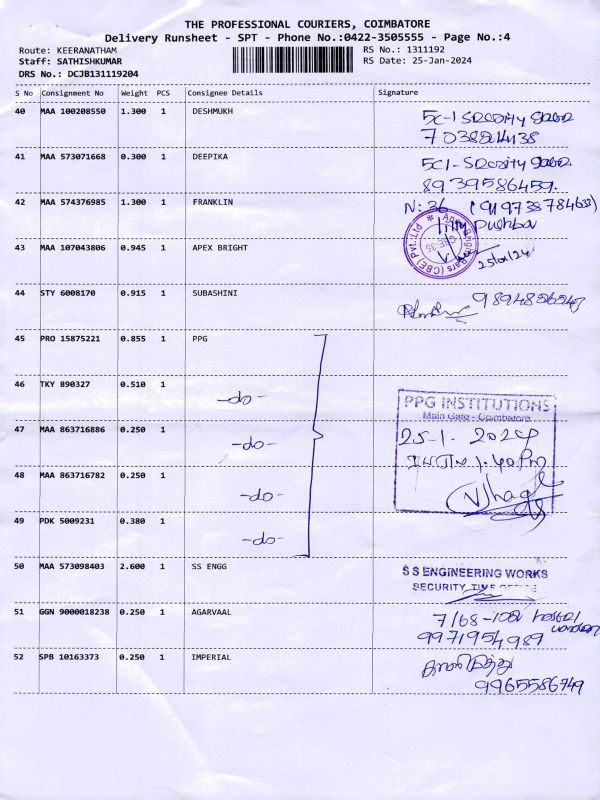 THE PROFESSIONAL COURIERS, COIMBATORE
Delivery Runsheet - SPT - Phone No.:0422-3505555 - Page No.:4
Route: KEERANATHAM
RS No.: 1311192
Staff: SATHISHKUMAR
RS Date: 25-Jan-2024
DRS No.: DCJB131119204
S No Consignment No Weight PCS Consignee Details Signature
40 MAA 100208550 1.300 1 DESHMUKH
41 MAA 573071668 0.300 1 DEEPIKA
8939586459.
42 MAA 574376985 1.300 1 FRANKLIN
N: 36
43 MAA 107043806 0.945 1 APEX BRIGHT
(CBE) Pvt. Ltd
44 STY 6008170 0.915 1 SUBASHINI
45 PRO 15875221 0.855 1 PPG
46 TKY 890327 0.510 1 -do-
PPG INSTITUTIONS
Main Gate - Coimbatore
47 MAA 863716886 0.250 1 -do-
25-1-2024
1.40 Pm
48 MAA 863716782 0.250 1 -do-
49 PDK 5009231 0.380 1 -do-
50 MAA 573098403 2.600 1 SS ENGG
S S ENGINEERING WORKS
SECURITY TIME OFFICE
51 GGN 9000018238 0.250 1 AGARVAAL
9971954989
52 SPB 10163373 0.250 1 IMPERIAL
9965586749